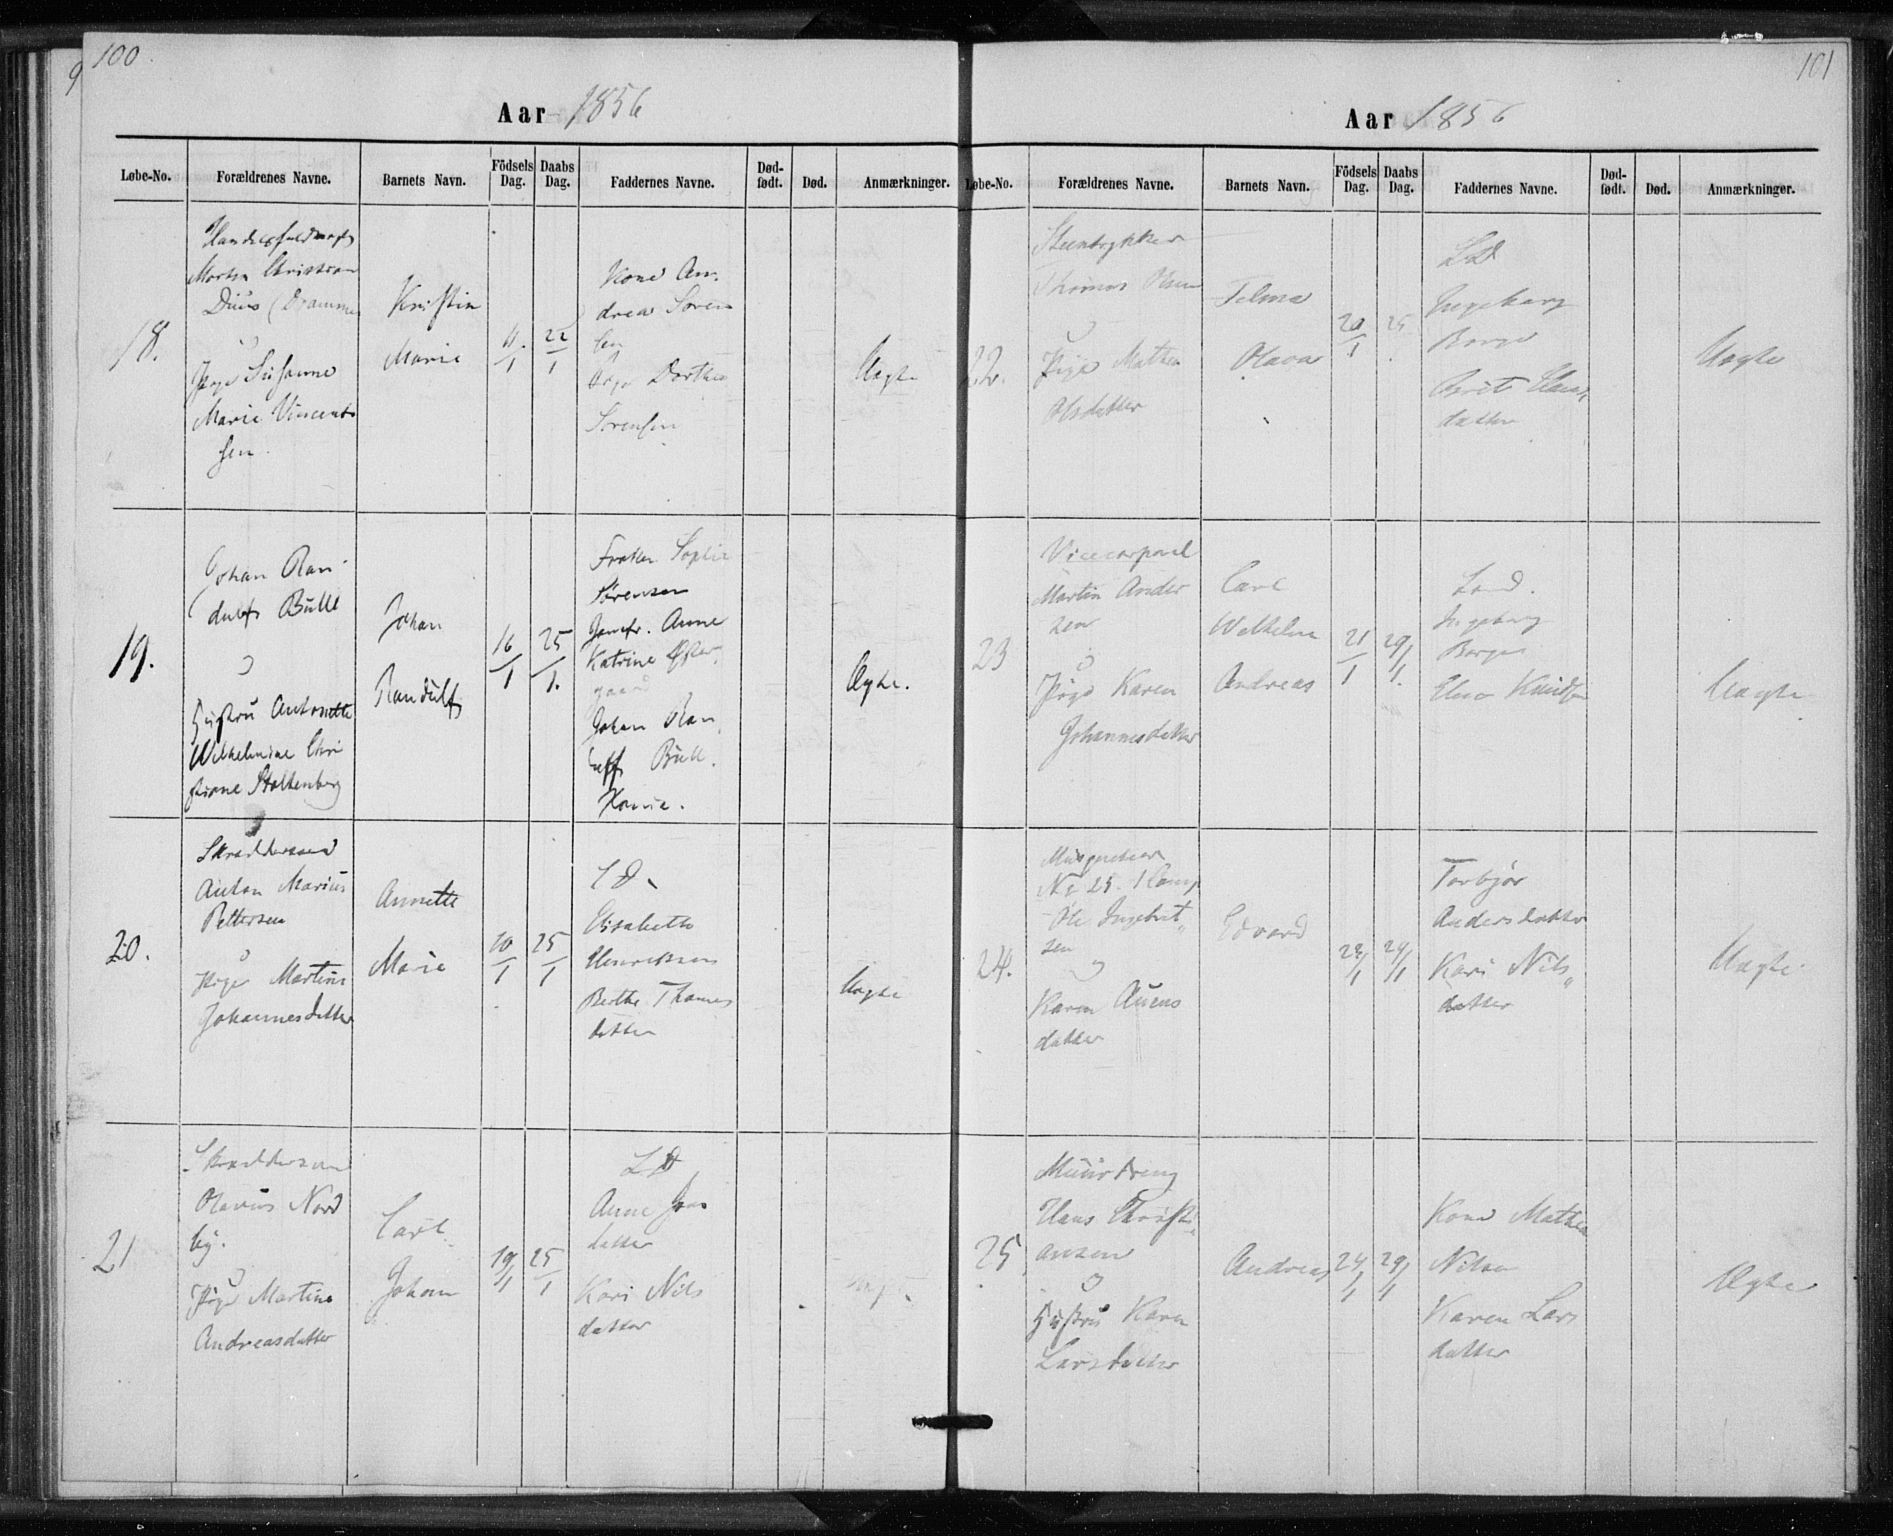 100
Aar 1856
Løbe-No.
Forældrenes Navne.
Barnets Navn.
Födsels Dag.
Daabs Dag.
Faddernes Navne.
Død-født.
Død.
Anmærkninger.
18.
Morten Christian
Pige Susanne
Marie Vincent
sen.
Kristin
Marie
11/1
22/1
Kone An-
drea Sören
sen
Pige Dorthea
Sörensen
Uægte
19.
Johan Ran-
dulf Bull
og
Hustru Antonette
Wilhelmine Chri
stiane Stoltenberg
Johan
Randulf
16/1
25/1.
Frøken Sophie
Sørensen
Jomfr. Anne
Katrine Øster-
gaard
Johan Ran
ulff Bull.
Ægte.
20.
Skræddersvend
Anton Marius
Pettersen
og
Pige Martine
Johannesdatter
Annette
Marie
10/1
25/1
LD
Elisabeth
Henriksen
Berthe Thomes
datter
Uægte
21
Skræddersvend
Olavus Nord
by.
og
Pige Martine
Andreasdatter
Carl
Johan
19/1
25/1
LD
Anne Jens
datter
Kari Nils
datter
101
Aar 1856
Løbe-No.
Forældrenes Navne.
Barnets Navn.
Födsels Dag.
Daabs Dag.
Faddernes Navne.
Død-født.
Død.
Anmærkninger.
22.
Steentrykker
Thomas Olsen
og
Pige Mathea
Olsdatter
Olava
20/1
25
LD
Ingeborg
Borge
Berit
datter
Uægte
23
Vicecorporal
Martin Ander
sen
og
Pige Karen
Johannesdatter
Carl
Wilhelm
Andreas
21/1
29/1
Ingeborg
Borge
Uægte
24.
No 25. 1 Comp
Ole Ingebret
sen
og
Karen
datter
Edvard
29/1
Torbjør
Andersdatter
Kari Nils
datter
Uægte.
25
Muurdreng
Hans Christi
ansen
og
Hustru Karen
Larsdatter
Andreas
24/1
29/1
Kone Mathea
Nilsen
Karen Lars
datter
Ægte